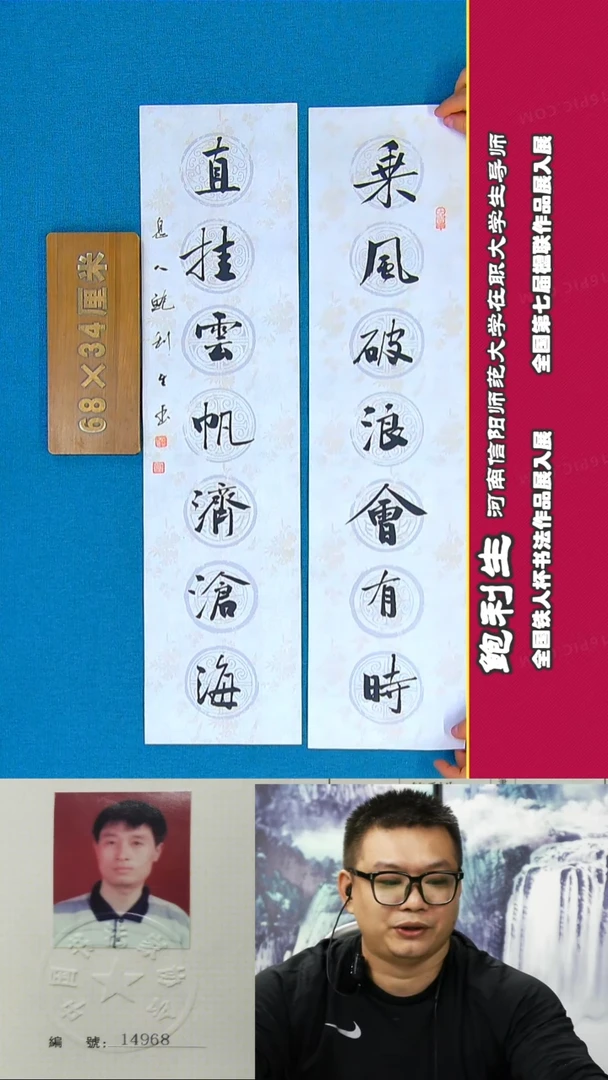 乘風破浪會有時
直挂雲帆濟滄海
息人鮑利生書
68×34厘米
鲍利生 河南信阳师范大学在职大学生导师
全国铁人杯书法作品展入展 全国第七届楹联作品展入展
編 號: 14968